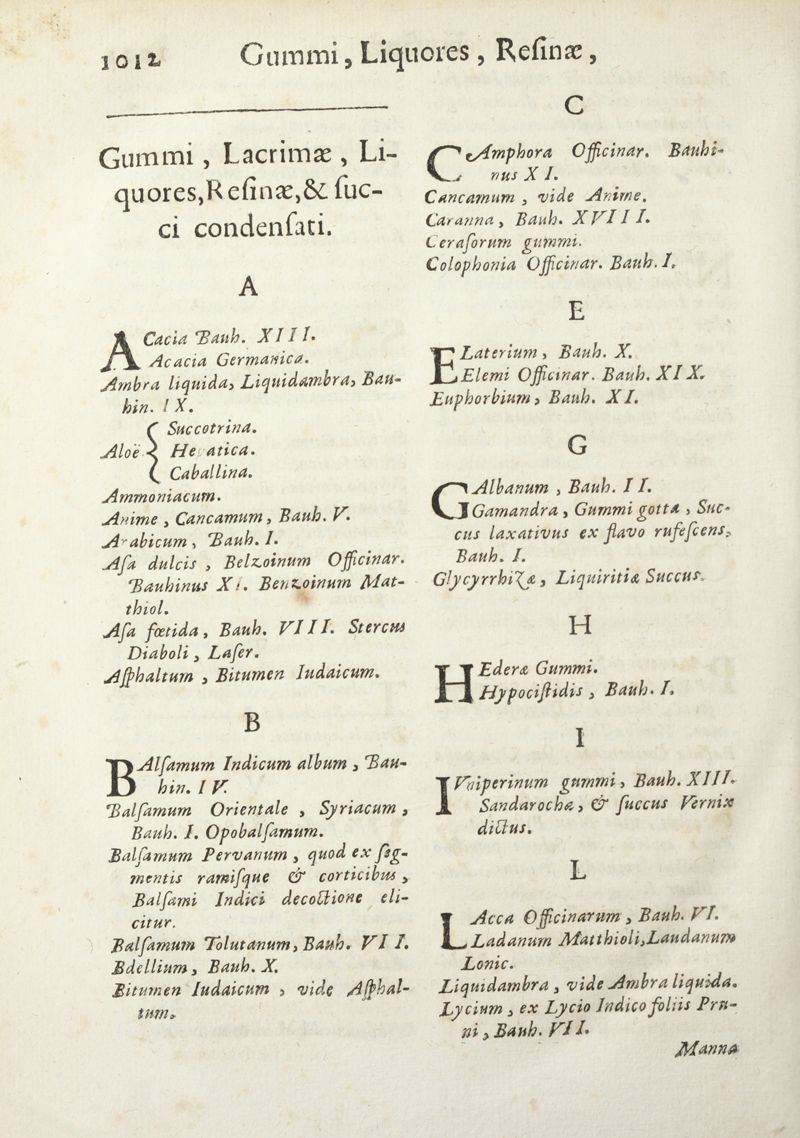 1012 Gummi, Liquores, Resinæ,
Gummi, Lacrimæ, Li-
quores, Resinæ, & suc-
ci condensati.
A
ACacia Bauh. XIII.
Acacia Germanica.
Ambra liquida, Liquidambra, Bau-
hin. IX.
Succotrina.
Aloë { He atica.
Caballina.
Ammoniacum.
Anime, Cancamum, Bauh. V.
Arabicum, Bauh. I.
Asa dulcis, Belzoinum Officinar.
Bauhinus XI. Benzoinum Mat-
thiol.
Asa fœtida, Bauh. VIII. Stercus
Diaboli, Laser.
Asphaltum, Bitumen Iudaicum.
B
BAlsamum Indicum album, Bau-
hin. IV.
Balsamum Orientale, Syriacum,
Bauh. I. Opobalsamum.
Balsamum Pervanum, quod ex seg-
mentis ramisque & corticibus,
Balsami Indici decoctione eli-
citur.
Balsamum Tolutanum, Bauh. VII.
Bdellium, Bauh. X.
Bitumen Iudaicum, vide Asphal-
tum.
C
CAmphora Officinar. Bauhi-
nus XI.
Cancamum, vide Anime.
Caranna, Bauh. XVIII.
Cerasorum gummi.
Colophonia Officinar. Bauh. I.
E
ELaterium, Bauh. X.
Elemi Officinar. Bauh. XIX.
Euphorbium, Bauh. XI.
G
GAlbanum, Bauh. II.
Gamandra, Gummi gotta, Suc-
cus laxativus ex flavo rufescens,
Bauh. I.
Glycyrrhizæ, Liquiritiæ Succus.
H
HEderæ Gummi.
Hypocistidis, Bauh. I.
I
IVniperinum gummi, Bauh. XIII.
Sandarocha, & succus Vernix
dictus.
L
LAcca Officinarum, Bauh. VI.
Ladanum Matthioli, Laudanum
Lonic.
Liquidambra, vide Ambra liquida.
Lycium, ex Lycio Indico foliis Pru-
ni, Bauh. VII.
Manna